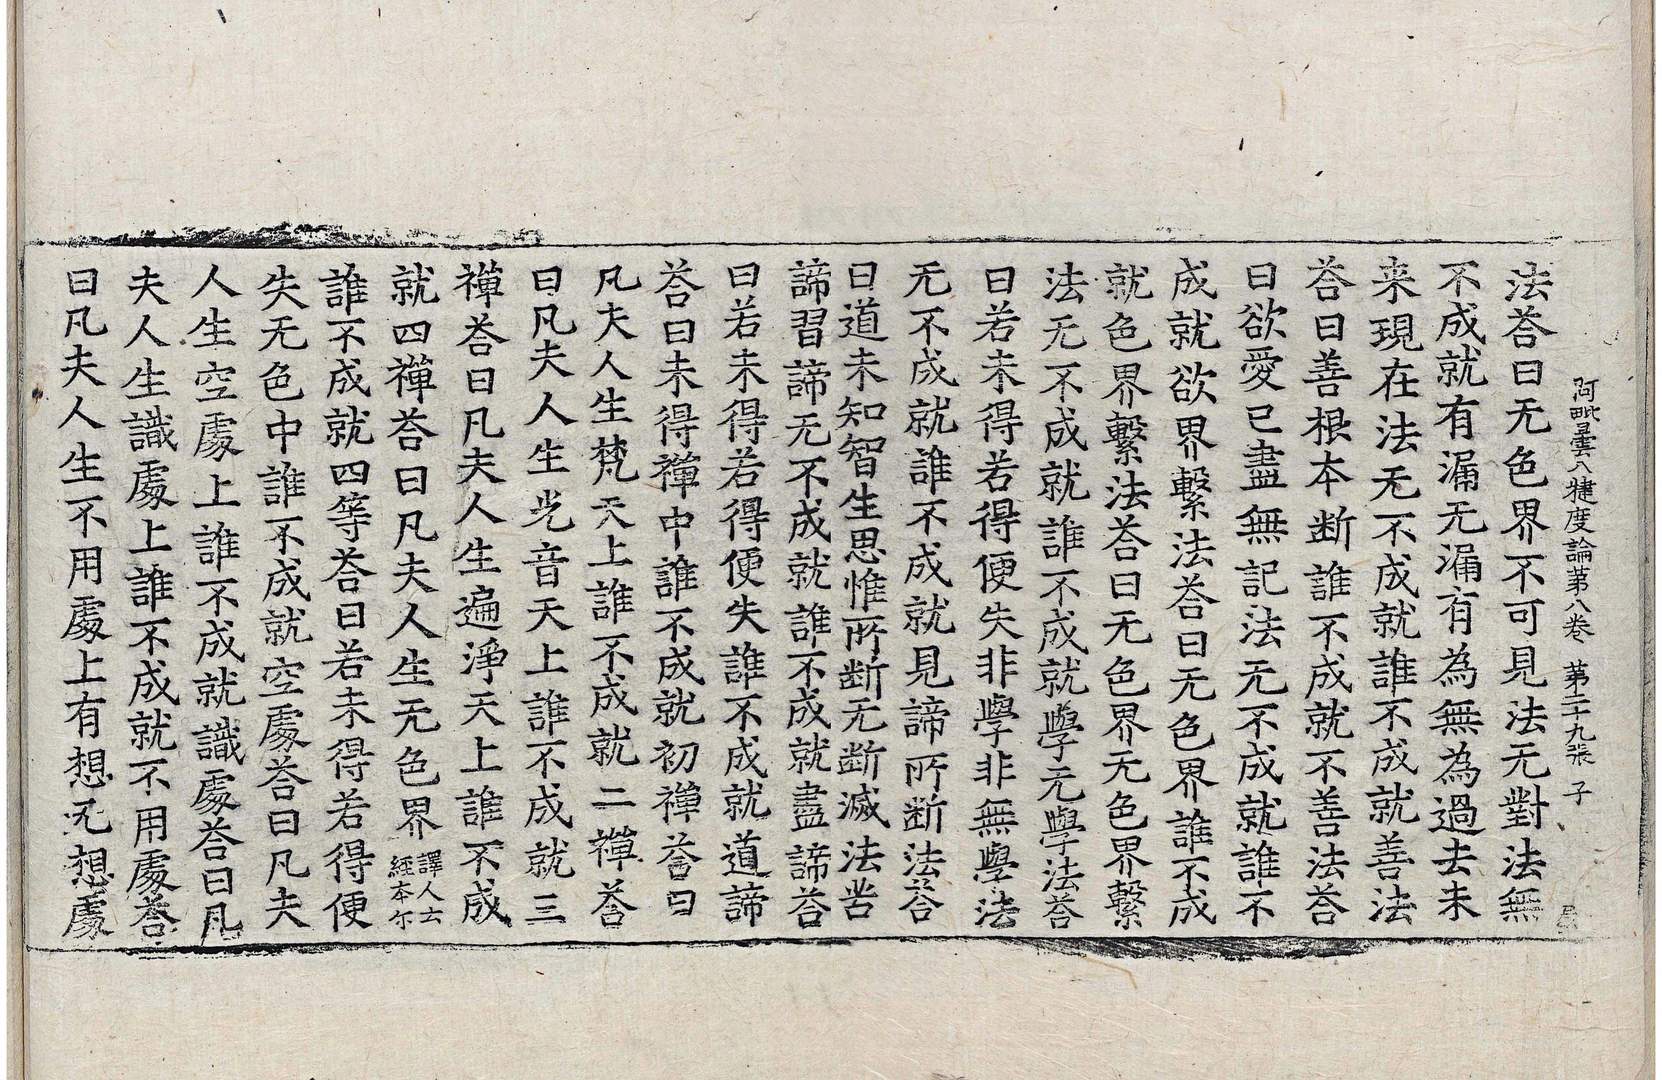 阿毗曇八犍度論苐八卷 苐二十九張 子
法荅曰无色界不可見法无對法無
不成就有漏无漏有為無為過去未
来現在法无不成就誰不成就善法
荅曰善根本断誰不成就不善法荅
曰欲愛已盡無記法无不成就誰不
成就欲界繫法荅曰无色界誰不成
就色界繫法荅曰无色界无色界繫
法无不成就誰不成就學无學法荅
曰若未得若得便失非學非無學法
无不成就誰不成就見諦所断法荅
曰道未知智生思惟所断无断滅法苦
諦習諦无不成就誰不成就盡諦荅
曰若未得若得便失誰不成就道諦
荅曰未得禪中誰不成就初禪荅曰
凡夫人生梵天上誰不成就二禪荅
曰凡夫人生光音天上誰不成就三
禪荅曰凡夫人生遍淨天上誰不成
就四禪荅曰凡夫人生无色界譯人云經本尒
誰不成就四等荅曰若未得若得便
失无色中誰不成就空處荅曰凡夫
人生空處上誰不成就識處荅曰凡
夫人生識處上誰不成就不用處荅
曰凡夫人生不用處上有想无想處